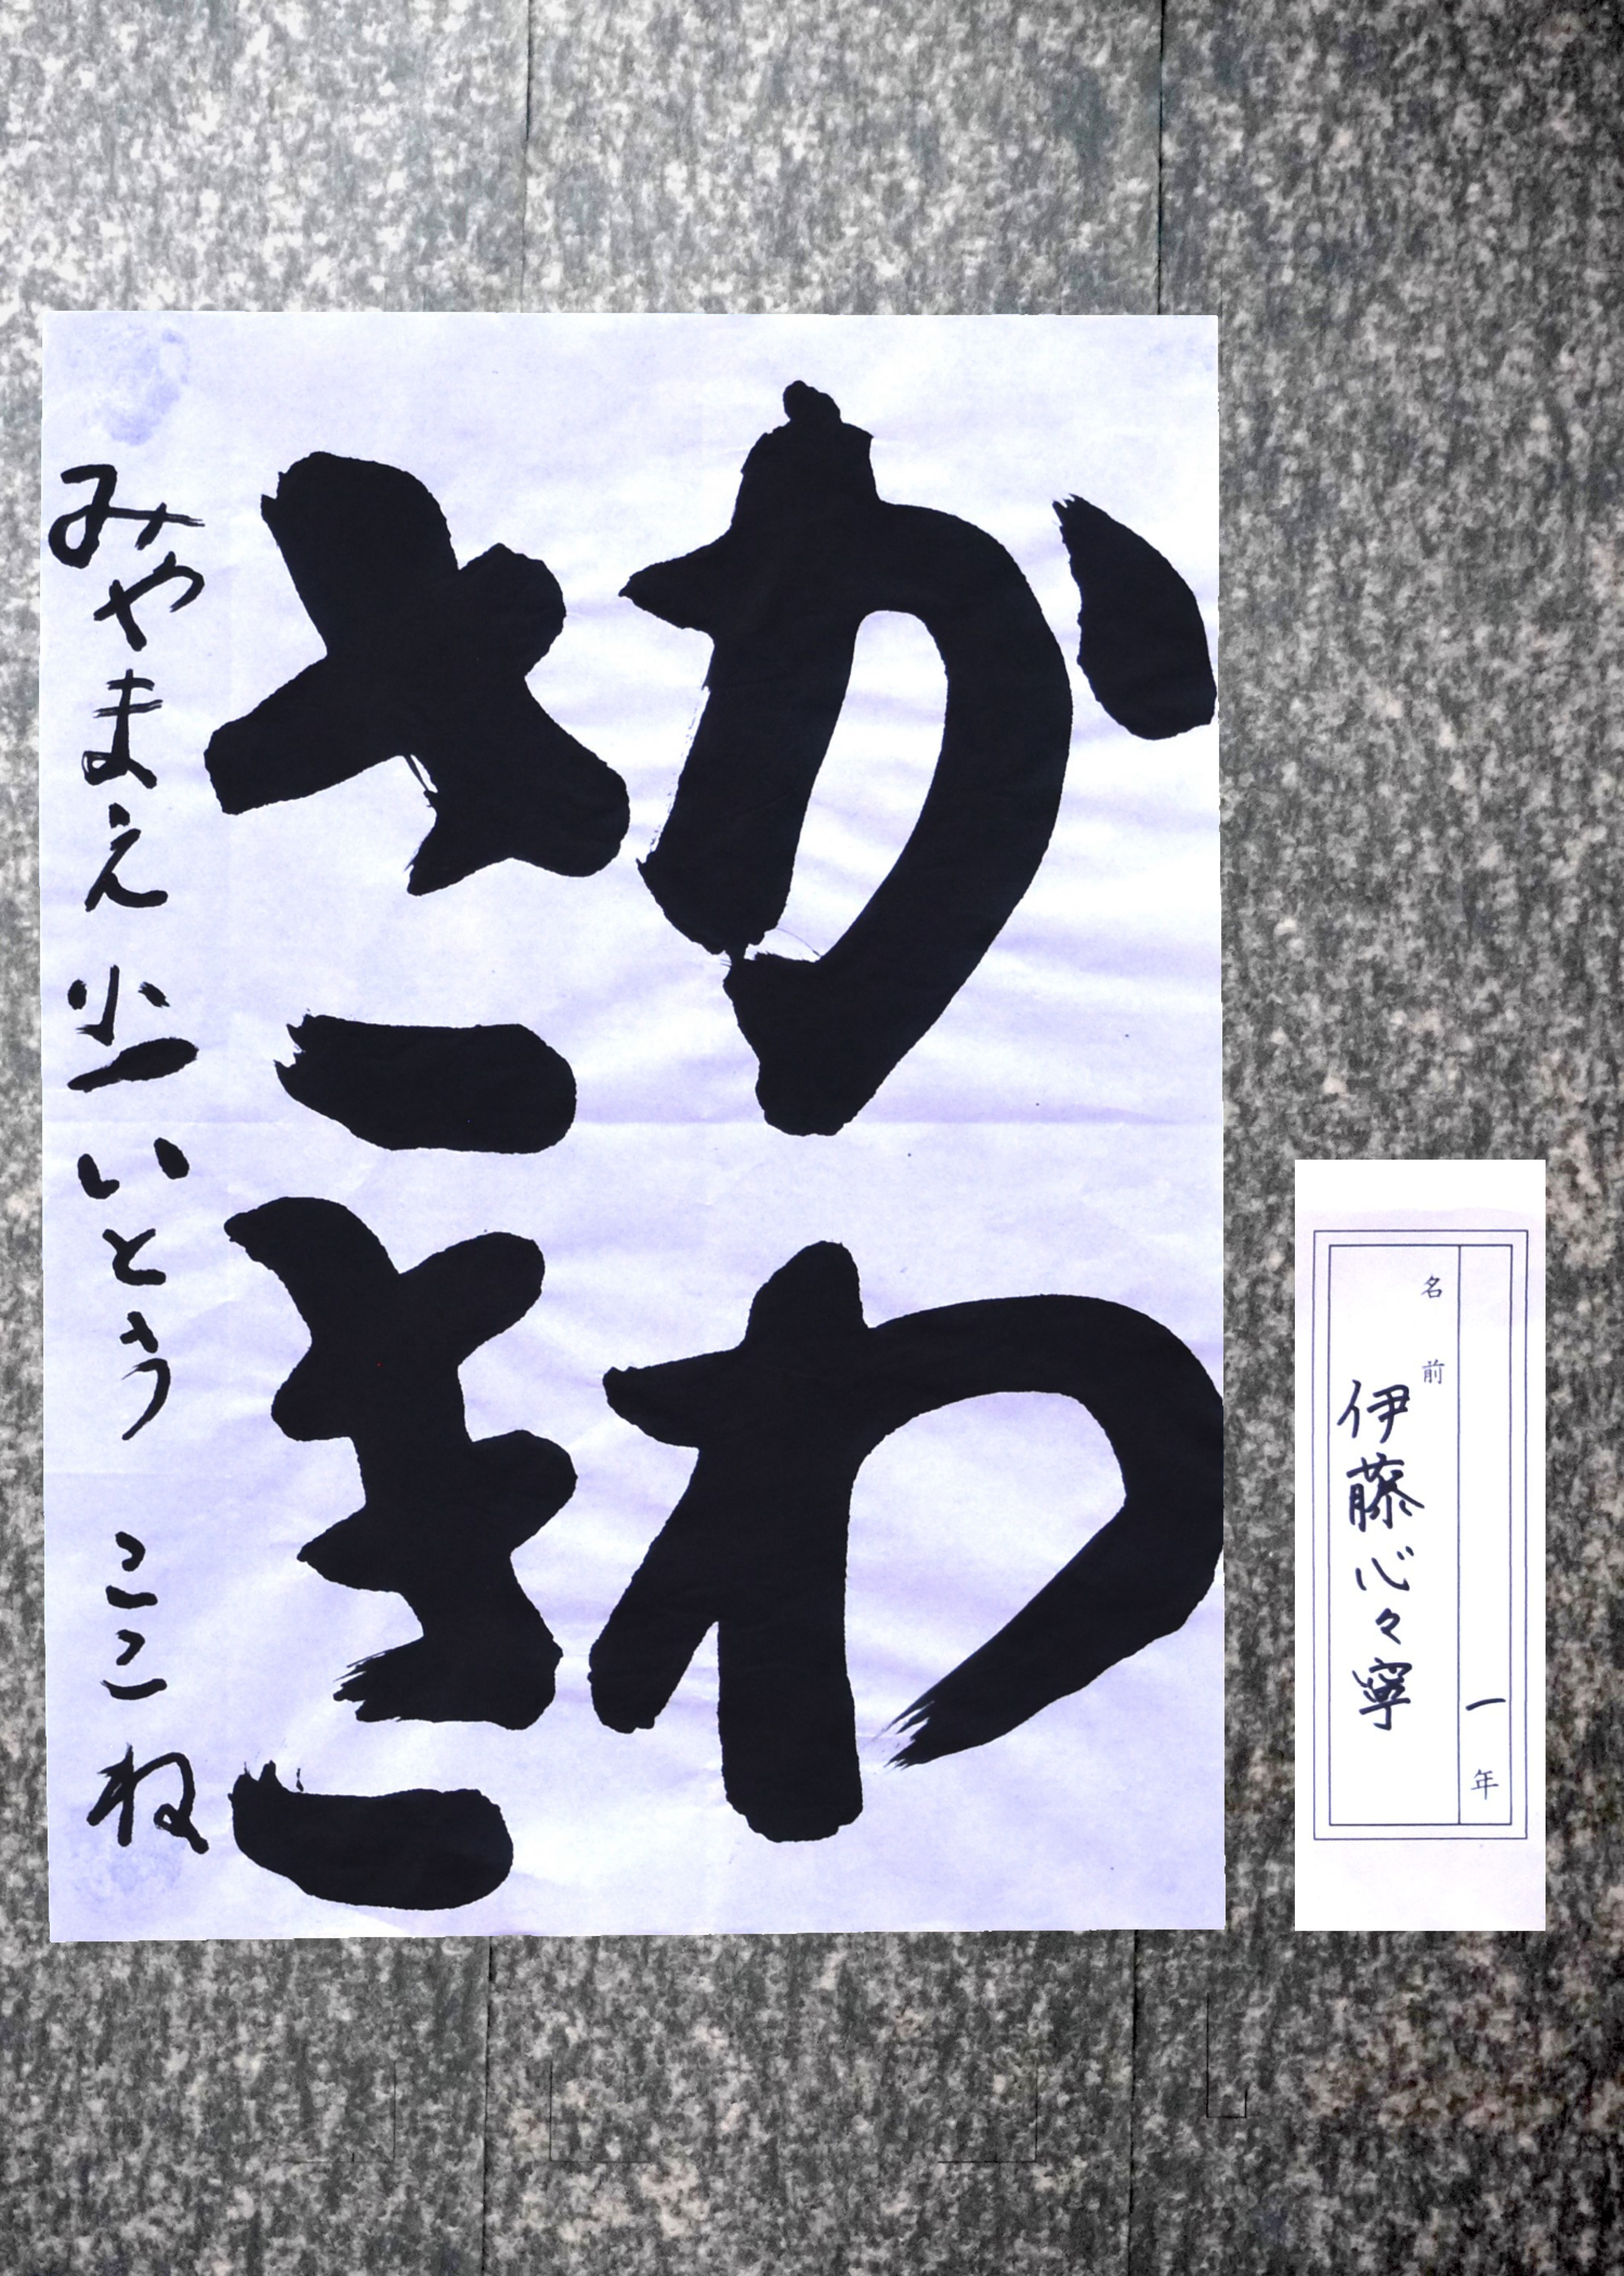 一年
名前
伊藤心々寧
かわ
さき
みやまえ 小一 いとう ここね